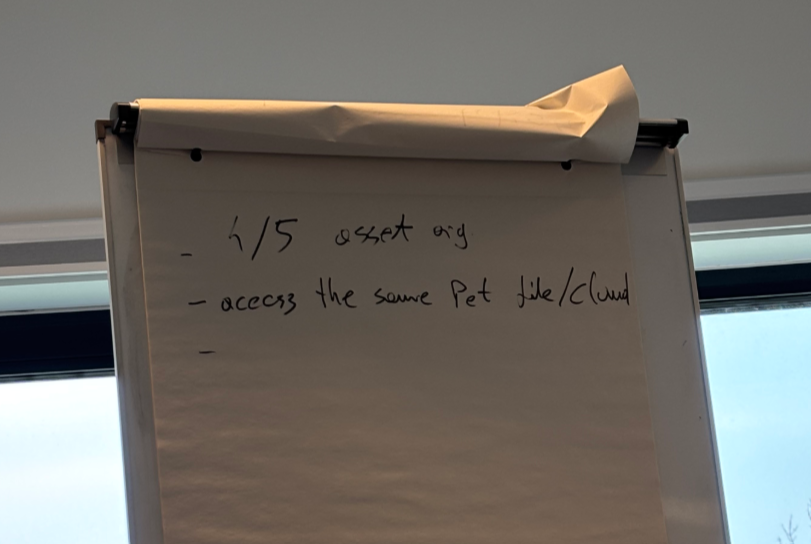 - 4/5 asset org
- access the same Pet file/cloud
-